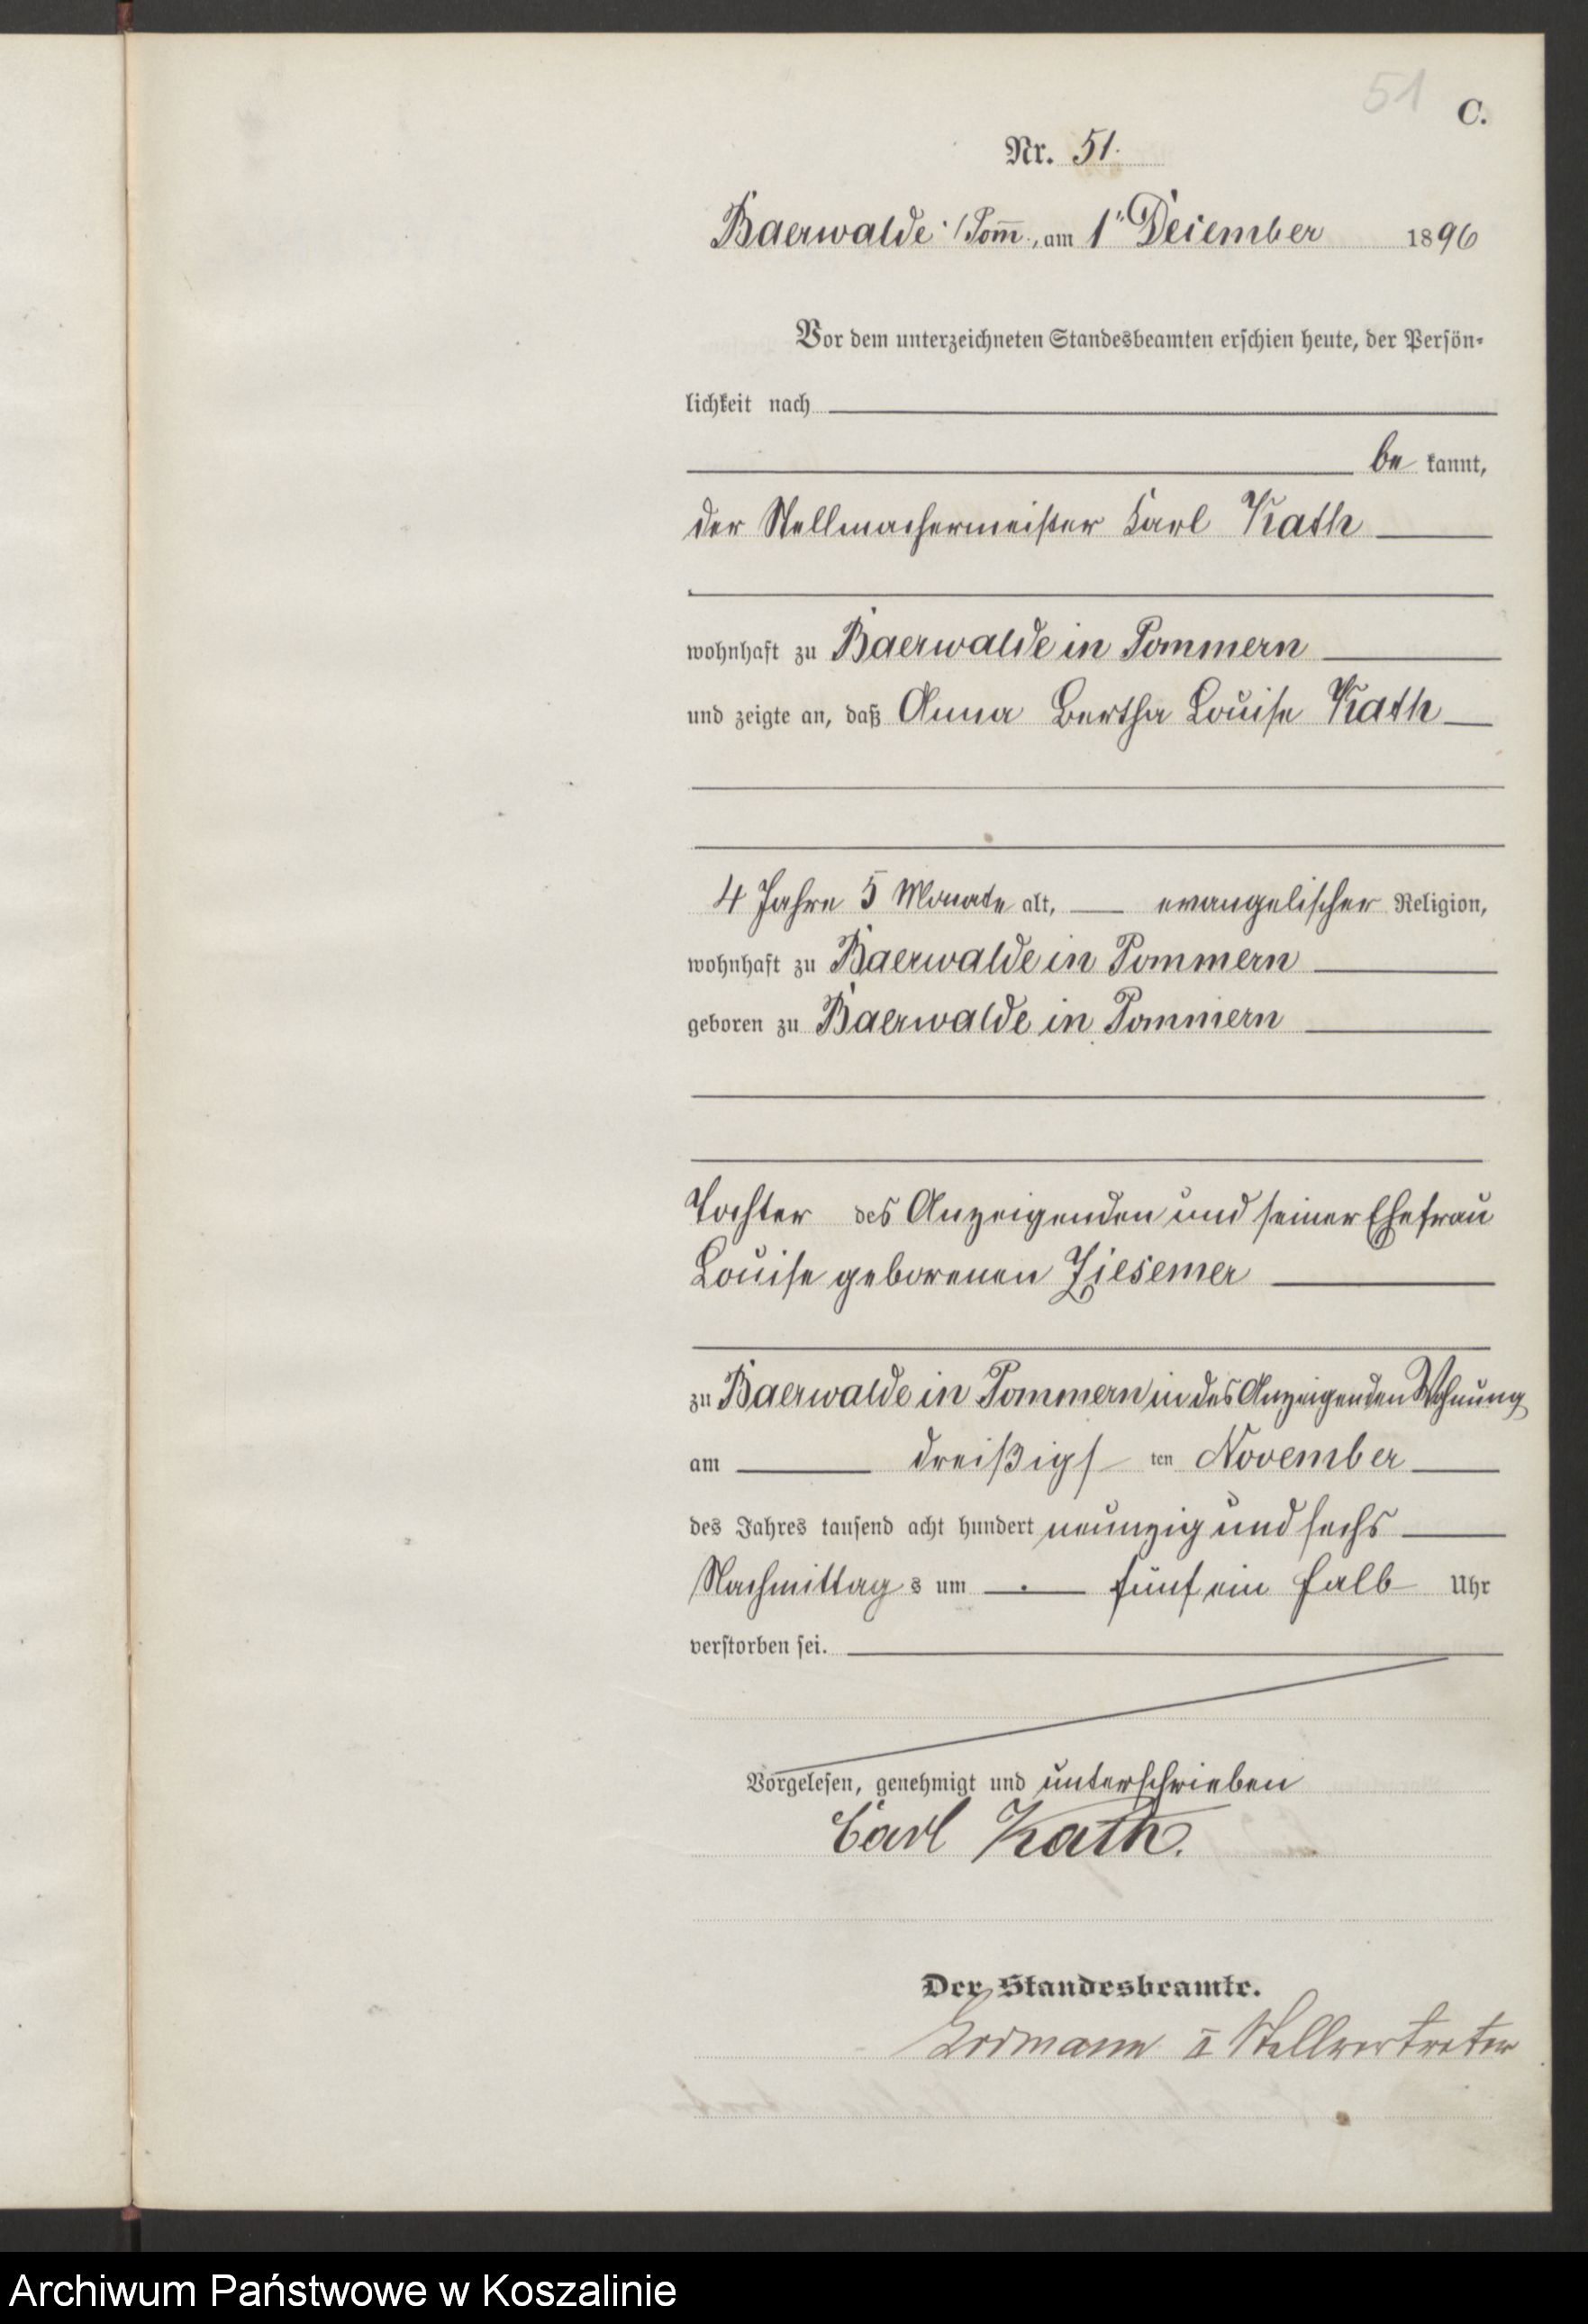 51
C.
Nr. 51.
Baerwalde i/Pom̅., am 1ten Dezember 1896
Vor dem unterzeichneten Standesbeamten erschien heute, der Persön-
lichkeit nach
be kannt,
der Stellmachermeister Karl Kath
wohnhaft zu Baerwalde in Pommern
und zeigte an, daß Anna Bertha Louise Kath
4 Jahre 5 Monate alt, evangelischer Religion,
wohnhaft zu Baerwalde in Pommern
geboren zu Baerwalde in Pommern
Tochter des Anzeigenden und seiner Ehefrau
Louise geborenen Ziesemer
zu Baerwalde in Pommern in des Anzeigenden Wohnung
am dreißigs ten November
des Jahres tausend acht hundert neunzig und sechs
Nachmittag s um fünf ein halb Uhr
verstorben sei.
Vorgelesen, genehmigt und unterschrieben
Carl Kath.
Der Standesbeamte.
Erdmann II Stellvertreter
Archiwum Państwowe w Koszalinie